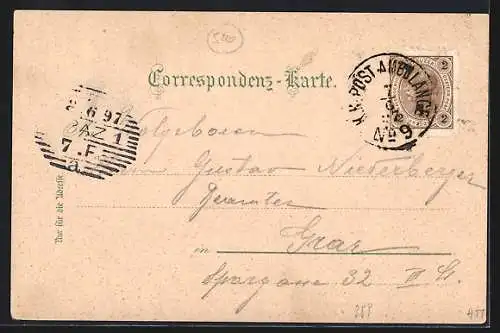 Correspondenz-Karte.
K.K. POST-AMBULANCE
No 9
2
2
6 97
GRAZ 1
7.F
a
Nur für die Adresse.
Hochwohlgeboren
Herrn Gustav Niederberger
Beamter
in Graz
Sporgasse 32 II St.